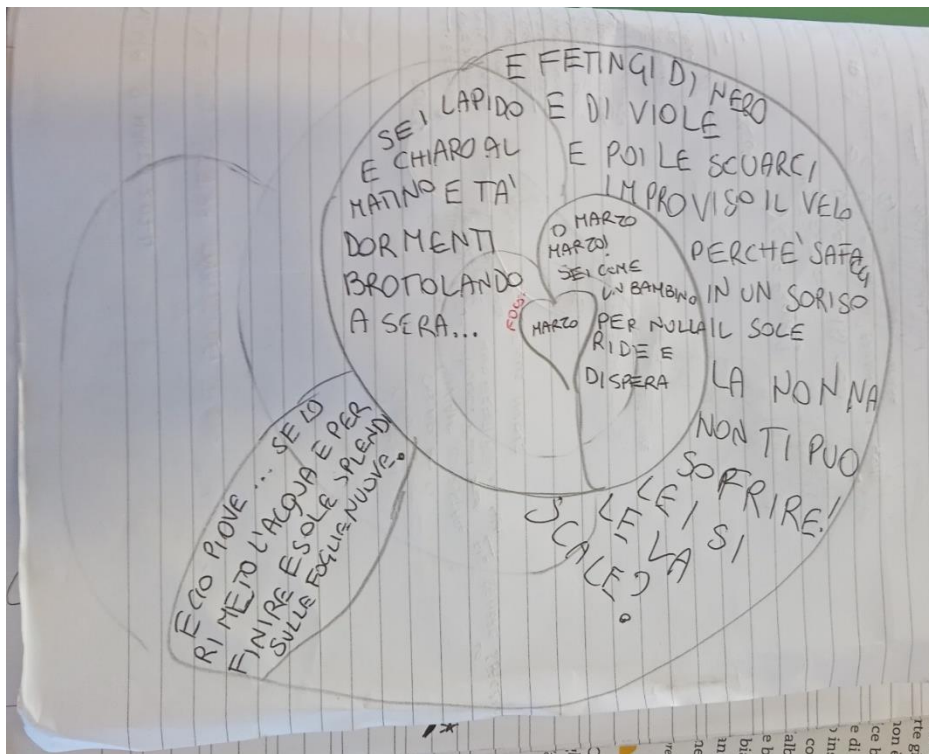 MARZO
O MARZO
MARZO!
SEI COME
UN BAMBINO
PER NULLA
RIDE E
DISPERA
SEI LAPIDO
E CHIARO AL
MATINO E TA'
DORMENTI
BROTOLANDO
A SERA...
E FETINGI DI NERO
E DI VIOLE
E POI LE SCUARCI
IMPROVISO IL VELO
PERCHE' SAFACCI
IN UN SORISO
IL SOLE
LA NONNA
NON TI PUO
SOFRIRE!
LEI SI
LE LA
SCALE?
ECIO PIOVE... SE LO
RIMETO L'ACQUA E PER
FINIRE E SOLE SPLENDI
SULLE FOGLIE NUOVE.